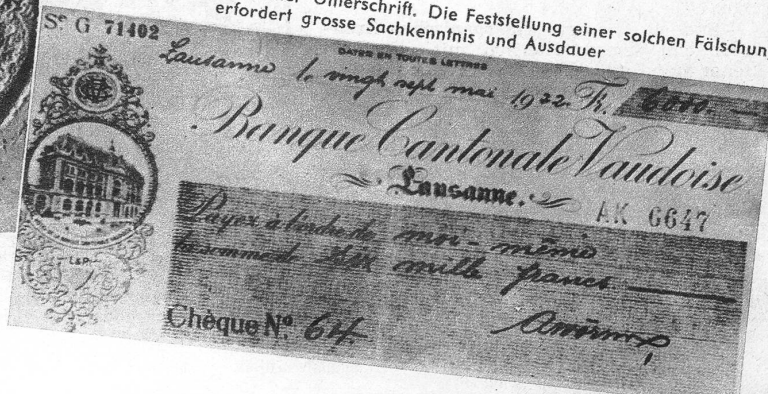 Unterschrift. Die Feststellung einer solchen Fälschun
erfordert grosse Sachkenntnis und Ausdauer
Se G 71402
DATER EN TOUTES LETTRES
Lausanne le vingt sept mai 1922. Fr. 6000.—
Banque Cantonale Vaudoise
Lausanne.
AK 6647
Payez à l'ordre de moi-même
la somme de Six mille francs
L&P
Chèque No. 64.